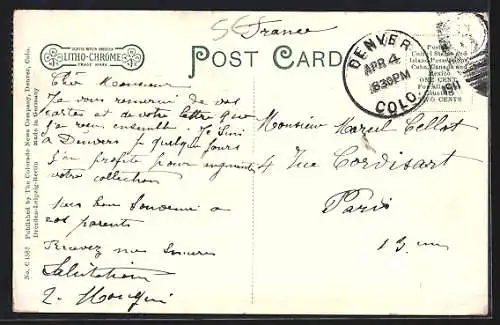 France
OCTOCHROME
LITHO-CHROME
TRADE MARK
POST CARD
DENVER
APR 4
830PM
COLO.
Postage
United States and
Island Possessions
Cuba, Canada and
Mexico
ONE CENT
For all other
Countries
TWO CENTS
Cher Monsieur
Je vous remercie de vos
cartes et de votre lettre que
j'ai reçu ensemble. Je suis
à Denvers p quelques jours
j'en profite pour augmenter
votre collection
Mes bons Souvenir a
vos parents
Recevez mes Sincères
Salutations
Monsieur Marcel Cellot
4 Rue Cordisart
Paris
15 em
No. C 1582 Published by The Colorado News Company, Denver, Colo.
Dresden-Leipzig-Berlin Made in Germany